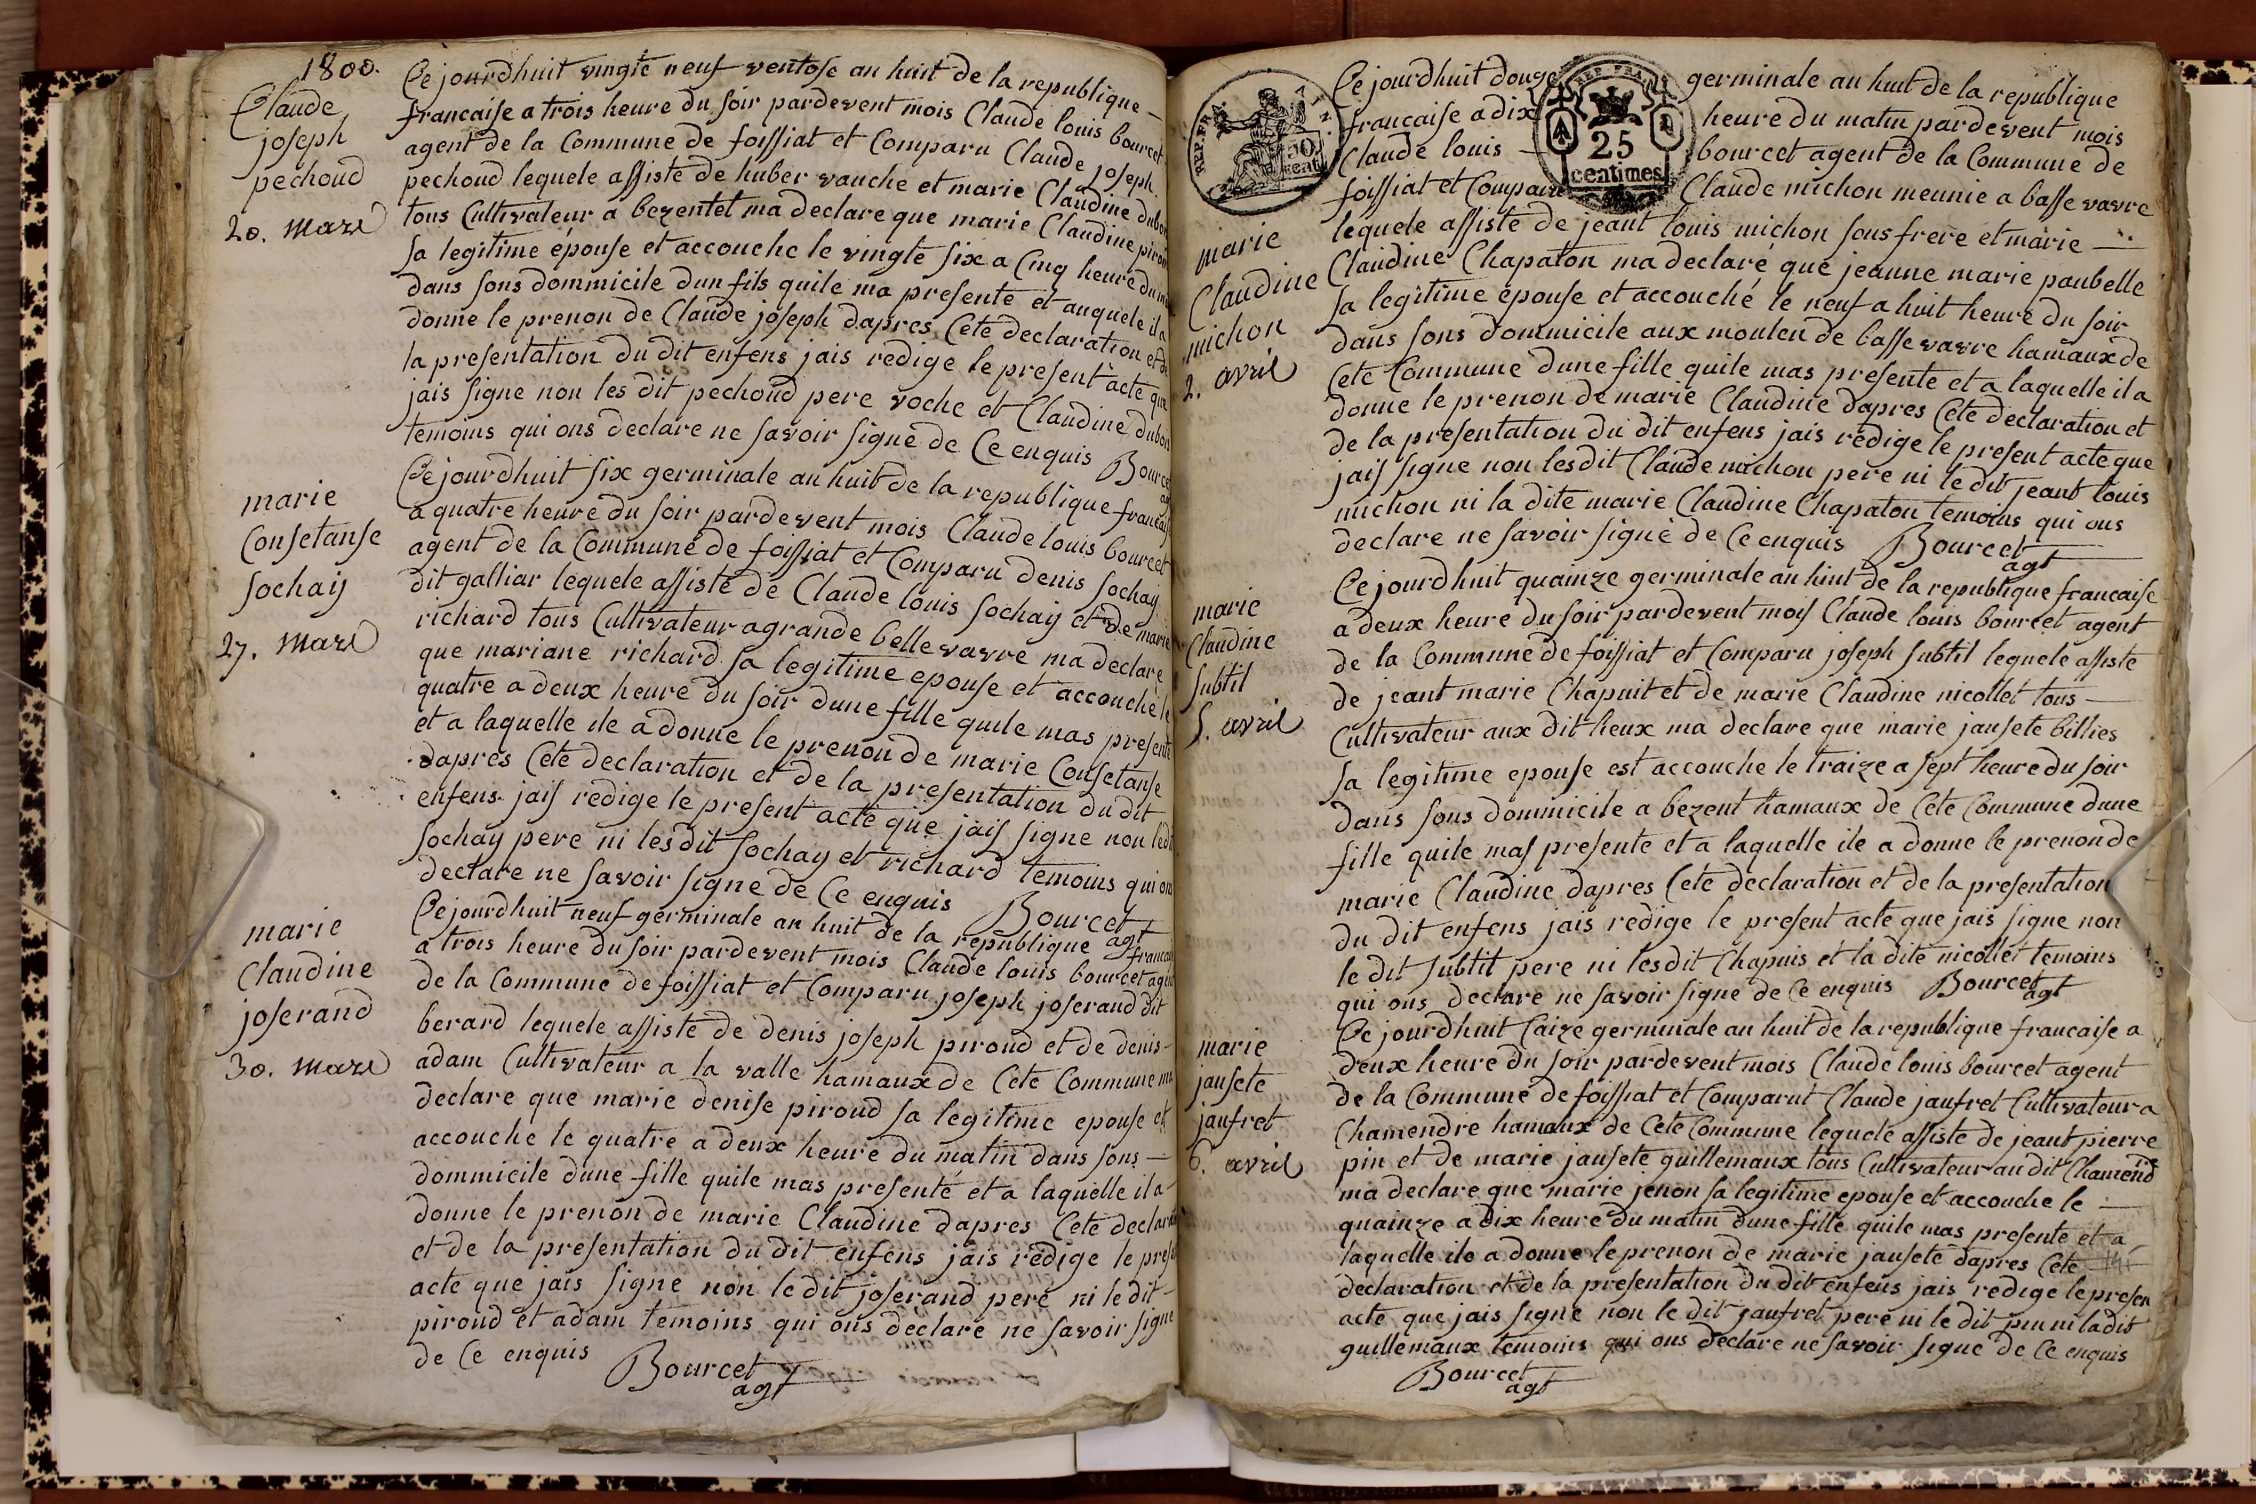 1800.
Claude
joseph
pechoud
20. Mars
Ce jourdhuit vingte neuf ventose an huit de la republique
francaise a trois heure du soir pardevent mois Claude louis bourcet
agent de la Commune de foissiat et Comparu Claude joseph
pechoud lequele assiste de huber vauche et marie Claudine dubois
tous Cultivateur a bezentet ma declare que marie Claudine piroud
sa legitime épouse et accouche le vingte six a Cinq heure du
dans sons dommicile dun fils quile ma presente et auquele il a
donne le prenon de Claude joseph dapres Cete declaration et de
la presentation du dit enfens jais redige le present acte que
jais signe non les dit pechoud pere voche et Claudine dubois
temoins qui ons declare ne savoir signe de Ce enquis Bourcet
agt
marie
Consetanse
sochay
27. Mars
Ce jourdhuit six germinale an huit de la republique francaise
a quatre heure du soir pardevent mois Claude louis bourcet
agent de la Commune de foissiat et Comparu denis sochay
dit galliar lequele assiste de Claude louis sochay et de marie
richard tous Cultivateur a grande belle vavre ma declare
que mariane richard sa legitime epouse et accouché le
quatre a deux heure du soir dune fille quile mas presente
et a laquelle ile a donne le prenon de marie Consetanse
dapres Cete declaration et de la presentation du dit
enfens jais redige le present acte que jais signe non ledit
sochay pere ni les dit sochay et richard temoins qui ons
declare ne savoir signe de Ce enquis Bourcet
agt
marie
Claudine
joserand
30. Mars
Ce jourdhuit neuf germinale an huit de la republique francaise
a trois heure du soir pardevent mois Claude louis bourcet agent
de la Commune de foissiat et Comparu joseph joserand dit
berard lequele assiste de denis joseph piroud et de denis
adam Cultivateur a la valle hamaux de Cete Commune ma
declare que marie denise piroud sa legitime epouse et
accouche le quatre a deux heure du matin dans sons
dommicile dune fille quile mas presenté et a laquelle il a
donne le prenon de marie Claudine dapres Cete declaration
et de la presentation du dit enfens jais redige le present
acte que jais signe non le dit joserand pere ni le dit
piroud et adam temoins qui ons declare ne savoir signe
de Ce enquis
Bourcet
agt
REP. FRA.
50
cent
REP. FRA
25
centimes
marie
Claudine
michon
2. avril
Ce jourdhuit douze germinale an huit de la republique
francaise a dix heure du matin pardevent mois
Claude louis bourcet agent de la Commune de
foissiat et Comparu Claude michon meunie a basse vavre
lequele assiste de jeant louis michon sons frere et marie
Claudine Chapaton ma declaré que jeanne marie paubelle
sa legitime epouse et accouché le neuf a huit heure du soir
dans sons dommicile aux moulen de basse vavre hamaux de
Cete Commune dune fille quile mas presente et a laquelle il a
donne le prenon de marie Claudine dapres Cete declaration et
de la presentation du dit enfens jais redige le present acte que
jais signe non lesdit Claude michon pere ni le dit jeant louis
michon ni la dite marie Claudine Chapaton temoins qui ons
declare ne savoir signé de Ce enquis Bourcet
agt
marie
Claudine
subtil
5. avril
Ce jourdhuit quainze germinale an huit de la republique francaise
a deux heure du soir pardevent mois Claude louis bourcet agent
de la Commune de foissiat et Comparu joseph subtil lequele assiste
de jeant marie Chapuit et de marie Claudine nicollet tous
Cultivateur aux dit lieux ma declare que marie jansete billies
sa legitime epouse est accouche le traize a sept heure du soir
dans sons dommicile a bezent hamaux de Cete Commune dune
fille quile mas presente et a laquelle ile a donne le prenon de
marie Claudine dapres Cete declaration et de la presentation
du dit enfens jais redige le present acte que jais signe non
le dit subtil pere ni lesdit Chapuis et la dite nicollet temoins
qui ons declare ne savoir signe de Ce enquis Bourcet
agt
marie
jansete
jaufret
6. avril
Ce jourdhuit saize germinale an huit de la republique francaise a
deux heure du soir pardevent mois Claude louis bourcet agent
de la Commune de foissiat et Comparut Claude jaufret Cultivateur a
Chamendre hamaux de Cete Commune lequele assiste de jeant pierre
pin et de marie jansete guillemaux tous Cultivateur au dit Chamendre
ma declare que marie jenon sa legitime epouse et accouche le
quainze a dix heure du matin dune fille quile mas presente et a
laquelle ile a donne le prenon de marie jansete dapres Cete
declaration et de la presentation du dit enfens jais redige le presen
acte que jais signe non le dit jaufret pere ni le dit pin ni ladit
guillemaux temoins qui ons declare ne savoir signe de Ce enquis
Bourcet
agt